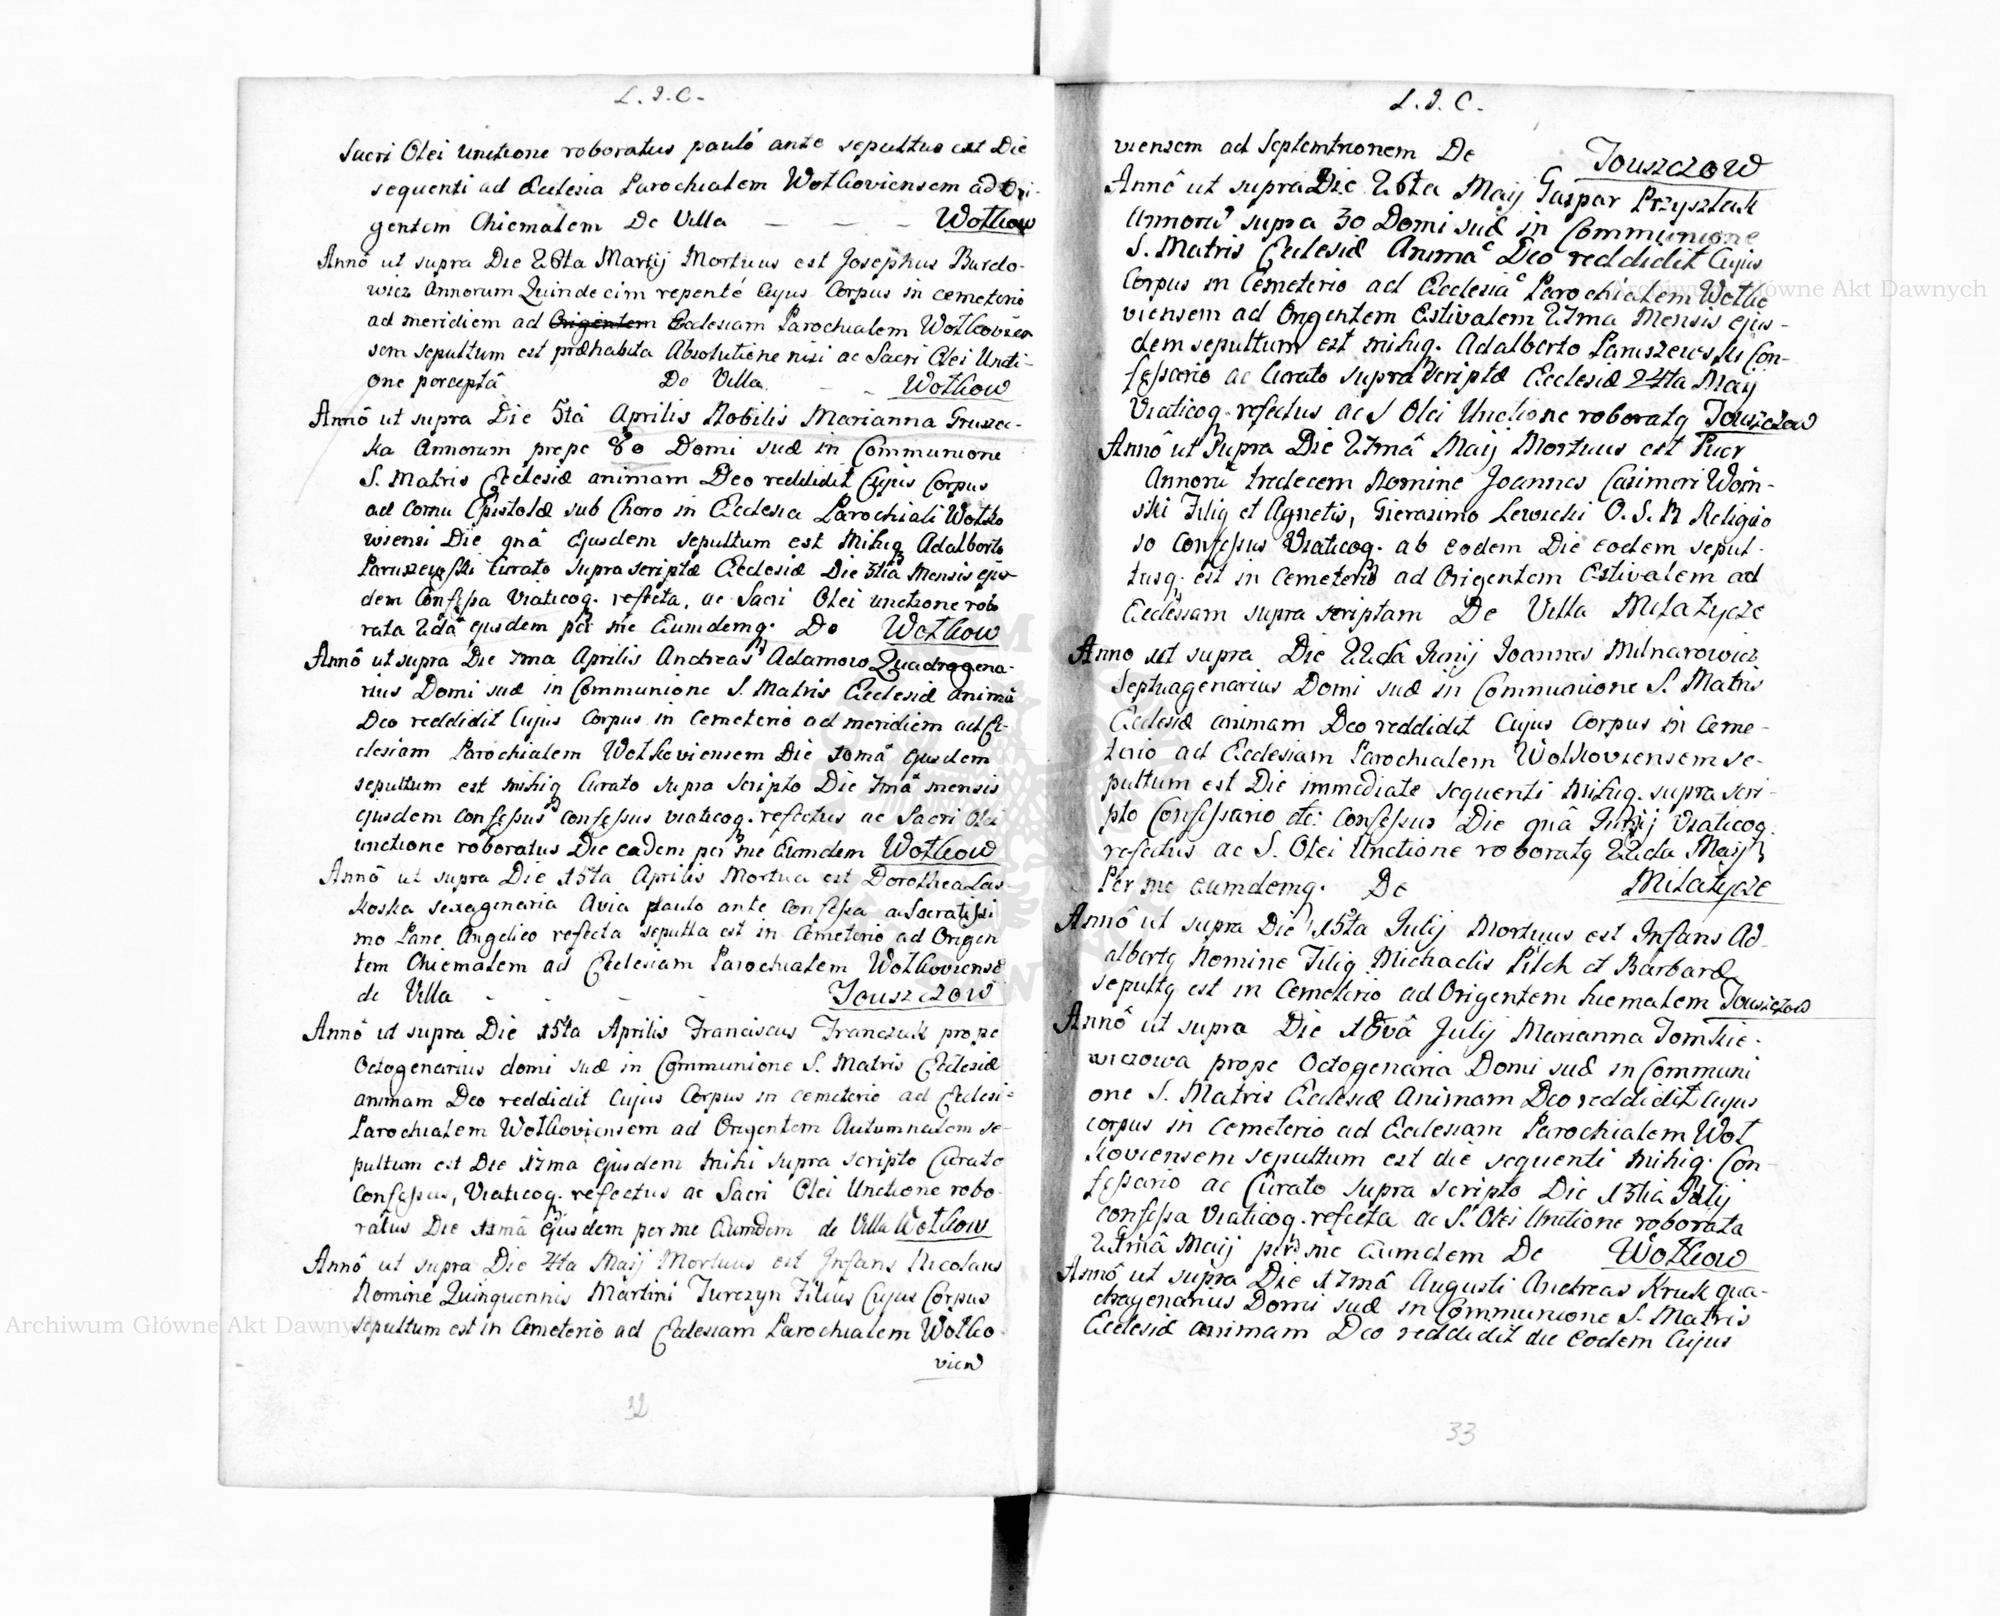 L. I. C.
Sacri Olei Unctione roboratus pauló ante sepultus est Die
sequenti ad Ecclesia Parochialem Wołkoviensem ad Ori-
gentem Chiemalem De Villa — — — Wołkow
Annô ut supra Die 26ta Martij Mortuus est Josephus Burdo-
wicz Annorum Quindecim repenté Cujus Corpus in cemeterio
ad meridiem ad Origentem Ecclesiam Parochialem Wołkovien
sem sepultum est præhabita Absolutione nisi ac Sacri Olei Uncti-
one perceptâ De Villa - - Wołkow
Annô ut supra Die 5tâ Aprilis Nobilis Marianna Gruszec-
ka Annorum prope 80 Domi suæ in Communione
S. Matris Ecclesiæ animam Deo reddidit Cujus Corpus
ad Cornu Epistolæ sub Choro in Ecclesia Parochiali Wołko
wiensi Die quâ Ejusdem sepultum est Mihiq Adalberto
Paruszewski Curato supra scriptæ Ecclesiæ Die 3tiâ Mensis ejus
dem Confessa Viaticoq. refecta, ac Sacri Olei unctione robo
rata 2dâ ejusdem per me Eumdemq. De Wołkow
Annô ut supra Die 7ma Aprilis Andreas Adamow Quadragena-
rius Domi suæ in Communione S. Matris Ecclesiæ animâ
Deo reddidit Cujus Corpus in Cemeterio ad meridiem ad Ec-
clesiam Parochialem Wołkoviensem Die 10mâ Ejusdem
sepultum est mihiq Curato supra scripto Die 7mâ mensis
ejusdem confessus confessus viaticoq. refectus ac Sacri Olei
unctione roboratus Die eadem per me Eumdem Wołkow
Annô ut supra Die 15ta Aprilis Mortua est Dorothea Las-
koska sexagenaria Avia paulo ante confessa ac Sacratissi
mo Pane Angelico refecta sepulta est in Cemeterio ad Origen
tem Chiemalem ad Ecclesiam Parochialem Wołkoviense
de Villa - - - - Touszczow
Annô ut supra Die 15ta Aprilis Franciscus Franczuk prope
Octogenarius domi suæ in Communione S. Matris Ecclesiæ
animam Deo reddidit Cujus Corpus in cemeterio ad Ecclesi-
Parochialem Wołkoviensem ad Origentem Autumnalem se-
pultum est Die 17ma Ejusdem mihi supra scripto Curato
Confessus, Viaticoq. refectus ac Sacri Olei Unctione robo-
ratus Die 11mâ Ejusdem per me Eumdem de Villa Wołkow
Annô ut supra Die 4ta Maij Mortuus est Infans Nicolaus
Nomine Quinquennis Martini Turczyn Filius Cujus Corpus
sepultum est in Cemeterio ad Ecclesiam Parochialem Wołko-
vien
32
L. I. C.
viensem ad Septemtrionem De Touszczow
Annô ut supra Die 26ta Maij Gaspar Przysztak
Annorũ supra 30 Domi suæ in Communione
S. Matris Ecclesiæ Animã Deo reddidit Cujus
Corpus in Cemeterio ad Ecclesiã Parochialem Wołko
viensem ad Origentem Estivalem 27ma Mensis ejus-
dem sepultum est mihiq. Adalberto Paruszewski Con-
fessario ac Curato supra scriptæ Ecclesiæ 24ta Maij
Viaticoq. refectus ac S Olei Unctione roboratq Touszczow
Annô ut supra Die 27mâ Maij Mortuus est Puer
Annorũ tredecem Nomine Joannes Casimiri Woin-
ski Filiq et Agnetis, Gierazimo Lewicki O. S. B Religio
so Confessus Viaticoq. ab eodem Die eodem sepul-
tusq. est in Cemeterio ad Origentem Estivalem ad
Ecclesiam supra scriptam De Villa Milatycze
Anno ut supra Die 22dâ Junij Joannes Milnarowicz
Septuagenarius Domi suæ in Communione S. Matris
Ecclesiæ animam Deo reddidit Cujus Corpus in Ceme-
terio ad Ecclesiam Parochialem Wołkoviensem se-
pultum est Die immediate sequenti mihiq. supra scri-
pto Confessario etc: Confessus Die quâ Junij Viaticoq.
refectus ac S. Olei Unctione roboratq 22da Maij
Per me eumdemq. De Milatycze
Annô ut supra Die 15ta Julij Mortuus est Infans Ad-
albertq Nomine Filiq Michaelis Pilch et Barbaræ
sepultq est in Cemeterio ad Origentem hiemalem Touszczow
Annô ut supra Die 18vâ Julij Marianna Tomkie-
wiczowa prope Octogenaria Domi suæ in Communi
one S. Matris Ecclesiæ Animam Deo reddidit Cujus
corpus in Cemeterio ad Ecclesiam Parochialem Woł
koviensem sepultum est die sequenti mihiq. Con-
fessario ac Curato supra scripto Die 13tia Julij
confessa Viaticoq. refecta ac S. Olei Unctione roborata
27mâ Maij per me Eumdem De Wołkow
Annô ut supra Die 17mâ Augusti Andreas Kruk qua-
dragenarius Domi suæ in Communione S. Matris
Ecclesiæ animam Deo reddidit die Eodem Cujus
33
Archiwum Główne Akt Dawnych
Archiwum Główne Akt Dawnych